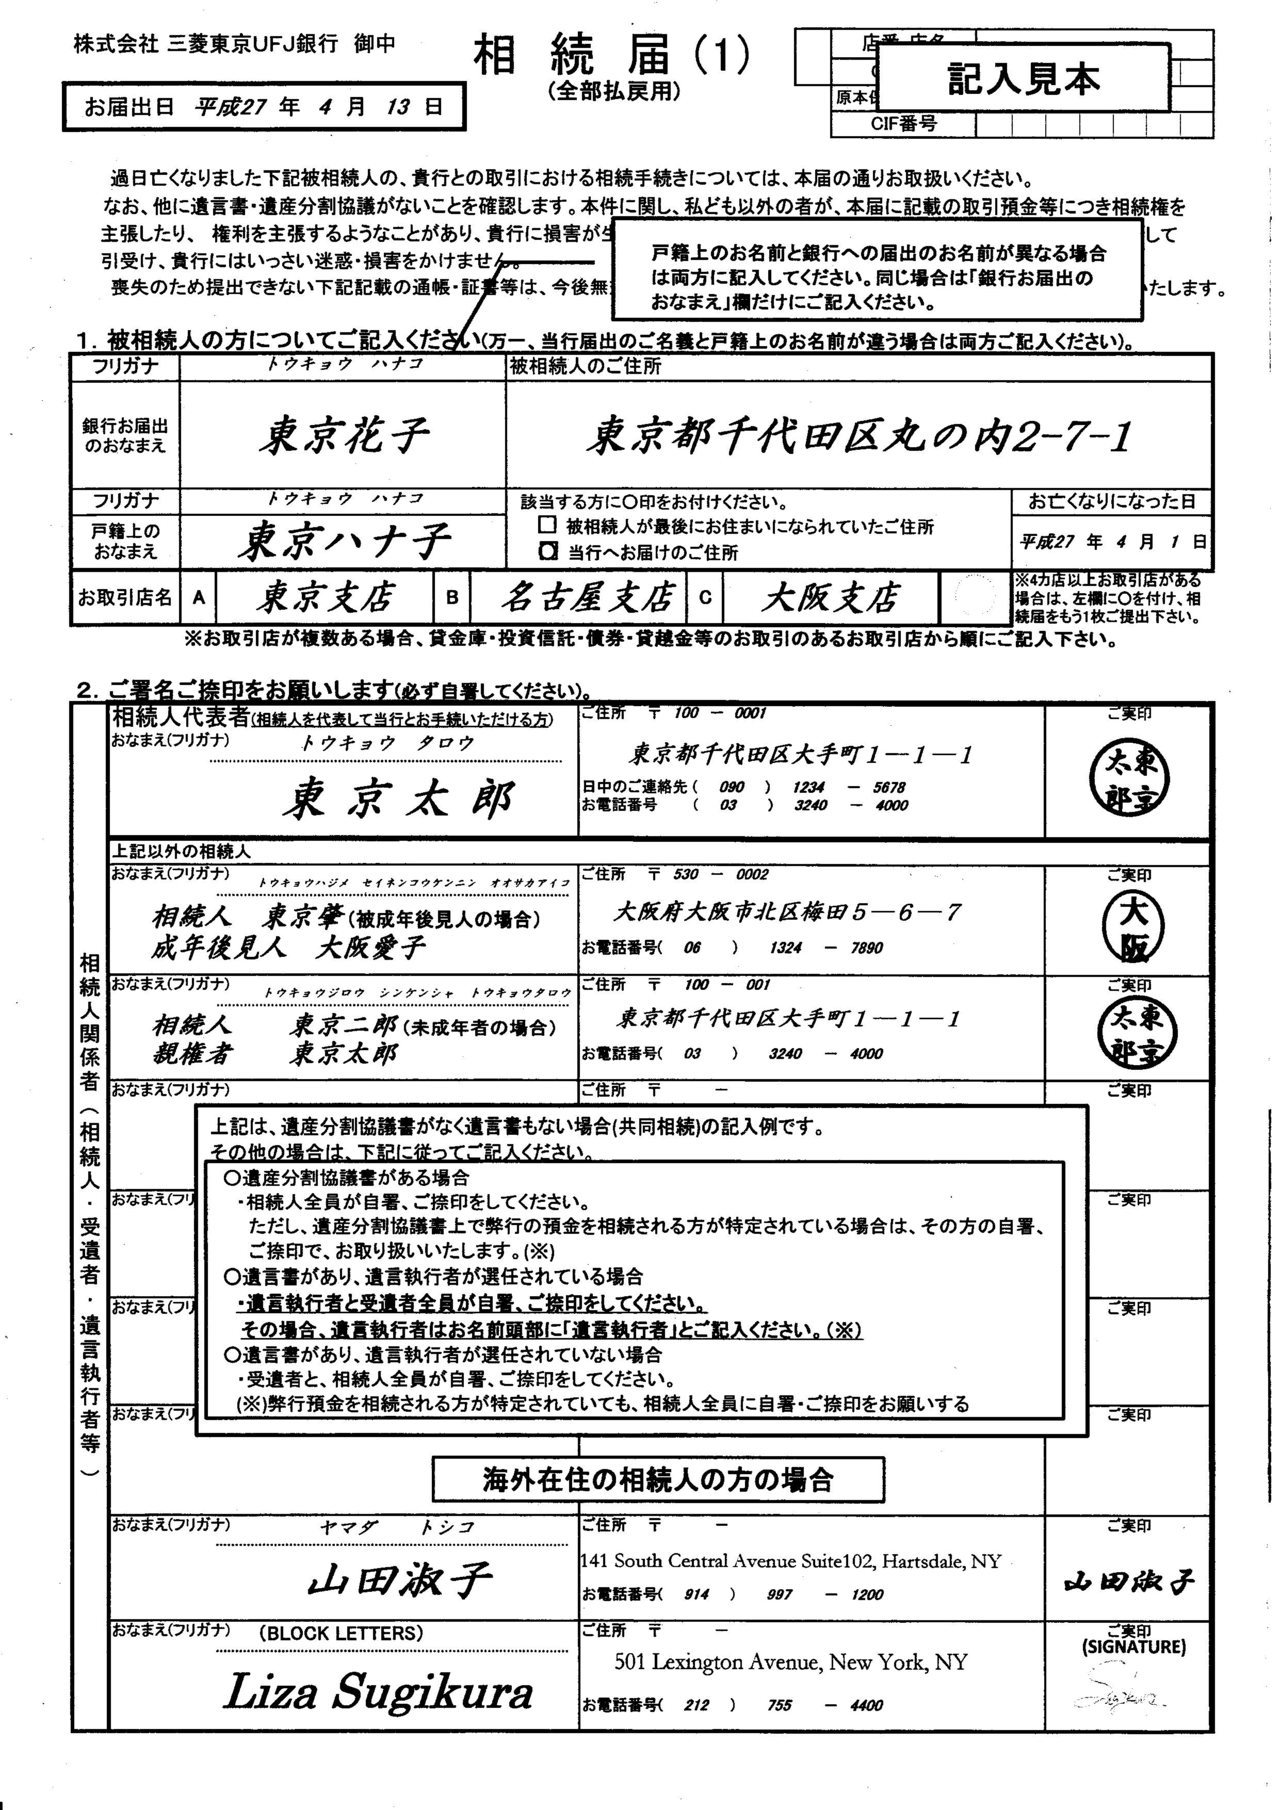 株式会社 三菱東京UFJ銀行 御中
相 続 届(1)
(全部払戻用)
店番 店名
記入見本
原本
CIF番号
お届出日 平成27 年 4 月 13 日
過日亡くなりました下記被相続人の、貴行との取引における相続手続きについては、本届の通りお取扱いください。
なお、他に遺言書・遺産分割協議がないことを確認します。本件に関し、私ども以外の者が、本届に記載の取引預金等につき相続権を
主張したり、権利を主張するようなことがあり、貴行に損害が して
引受け、貴行にはいっさい迷惑・損害をかけません。
喪失のため提出できない下記記載の通帳・証書等は、今後無 たします。
戸籍上のお名前と銀行への届出のお名前が異なる場合
は両方に記入してください。同じ場合は「銀行お届出の
おなまえ」欄だけにご記入ください。
1. 被相続人の方についてご記入ください(万一、当行届出のご名義と戸籍上のお名前が違う場合は両方ご記入ください)。
フリガナ トウキョウ ハナコ 被相続人のご住所
銀行お届出のおなまえ 東京花子 東京都千代田区丸の内2-7-1
フリガナ トウキョウ ハナコ 該当する方に〇印をお付けください。 お亡くなりになった日
戸籍上のおなまえ 東京ハナ子 □ 被相続人が最後にお住まいになられていたご住所
□ 当行へお届けのご住所 平成27 年 4 月 1 日
お取引店名 A 東京支店 B 名古屋支店 C 大阪支店
※4カ店以上お取引店がある
場合は、左欄に〇を付け、相
続届をもう1枚ご提出下さい。
※お取引店が複数ある場合、貸金庫・投資信託・債券・貸越金等のお取引のあるお取引店から順にご記入下さい。
2. ご署名ご捺印をお願いします(必ず自署してください)。
相続人関係者(相続人・受遺者・遺言執行者等)
相続人代表者(相続人を代表して当行とお手続いただける方) ご住所 〒 100 - 0001 ご実印
おなまえ(フリガナ) トウキョウ タロウ
東京都千代田区大手町1-1-1
東京太郎
日中のご連絡先 ( 090 ) 1234 - 5678
お電話番号 ( 03 ) 3240 - 4000
東京太郎
上記以外の相続人
おなまえ(フリガナ) トウキョウハジメ セイネンコウケンニン オオサカアイコ ご住所 〒 530 - 0002 ご実印
相続人 東京肇(被成年後見人の場合) 大阪府大阪市北区梅田5-6-7
成年後見人 大阪愛子 お電話番号( 06 ) 1324 - 7890
大阪
おなまえ(フリガナ) トウキョウジロウ シンケンシャ トウキョウタロウ ご住所 〒 100 - 001 ご実印
相続人 東京二郎(未成年者の場合) 東京都千代田区大手町1-1-1
親権者 東京太郎 お電話番号( 03 ) 3240 - 4000
東京太郎
おなまえ(フリガナ) ご住所 〒 - ご実印
上記は、遺産分割協議書がなく遺言書もない場合(共同相続)の記入例です。
その他の場合は、下記に従ってご記入ください。
〇遺産分割協議書がある場合
・相続人全員が自署、ご捺印をしてください。
おなまえ(フリ ご実印
ただし、遺産分割協議書上で弊行の預金を相続される方が特定されている場合は、その方の自署、
ご捺印で、お取り扱いいたします。(※)
〇遺言書があり、遺言執行者が選任されている場合
・遺言執行者と受遺者全員が自署、ご捺印をしてください。
おなまえ(フリ ご実印
その場合、遺言執行者はお名前頭部に「遺言執行者」とご記入ください。(※)
〇遺言書があり、遺言執行者が選任されていない場合
・受遺者と、相続人全員が自署、ご捺印をしてください。
(※)弊行預金を相続される方が特定されていても、相続人全員に自署・ご捺印をお願いする
おなまえ(フリ ご実印
海外在住の相続人の方の場合
おなまえ(フリガナ) ヤマダ トシコ ご住所 〒 - ご実印
山田淑子 141 South Central Avenue Suite102, Hartsdale, NY 山田淑子
お電話番号( 914 ) 997 - 1200
おなまえ(フリガナ) (BLOCK LETTERS) ご住所 〒 - ご実印
(SIGNATURE)
Liza Sugikura 501 Lexington Avenue, New York, NY
お電話番号( 212 ) 755 - 4400